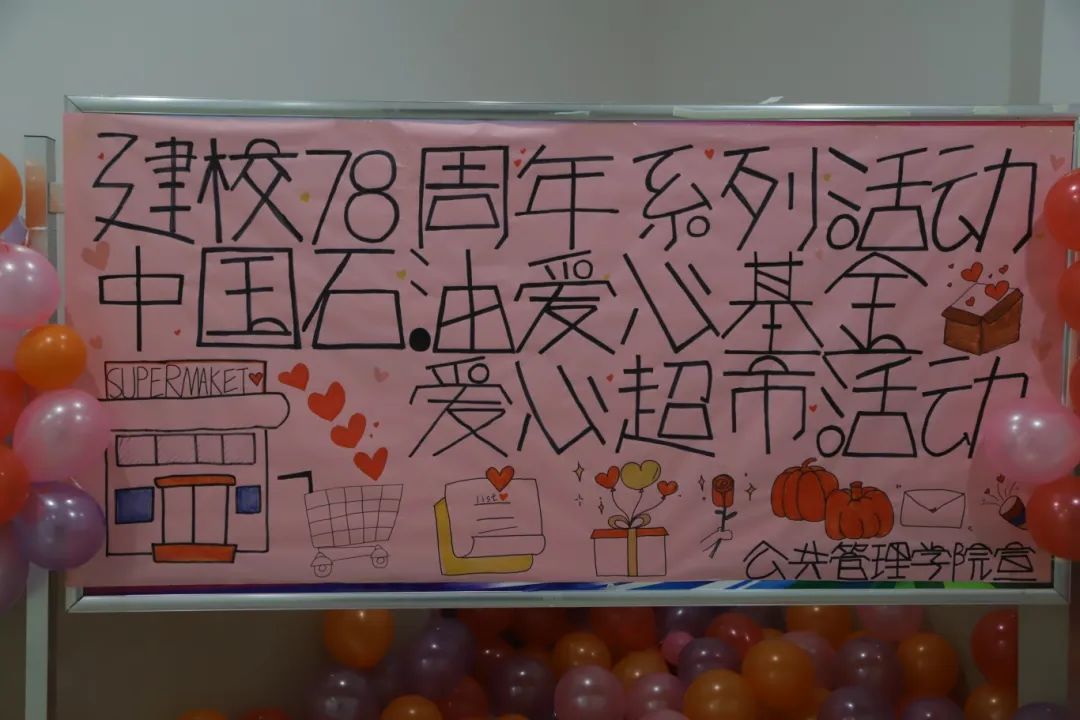 建校78周年系列活动
中国石油爱心基金
爱心超市活动
SUPERMAKET
list
公共管理学院宣